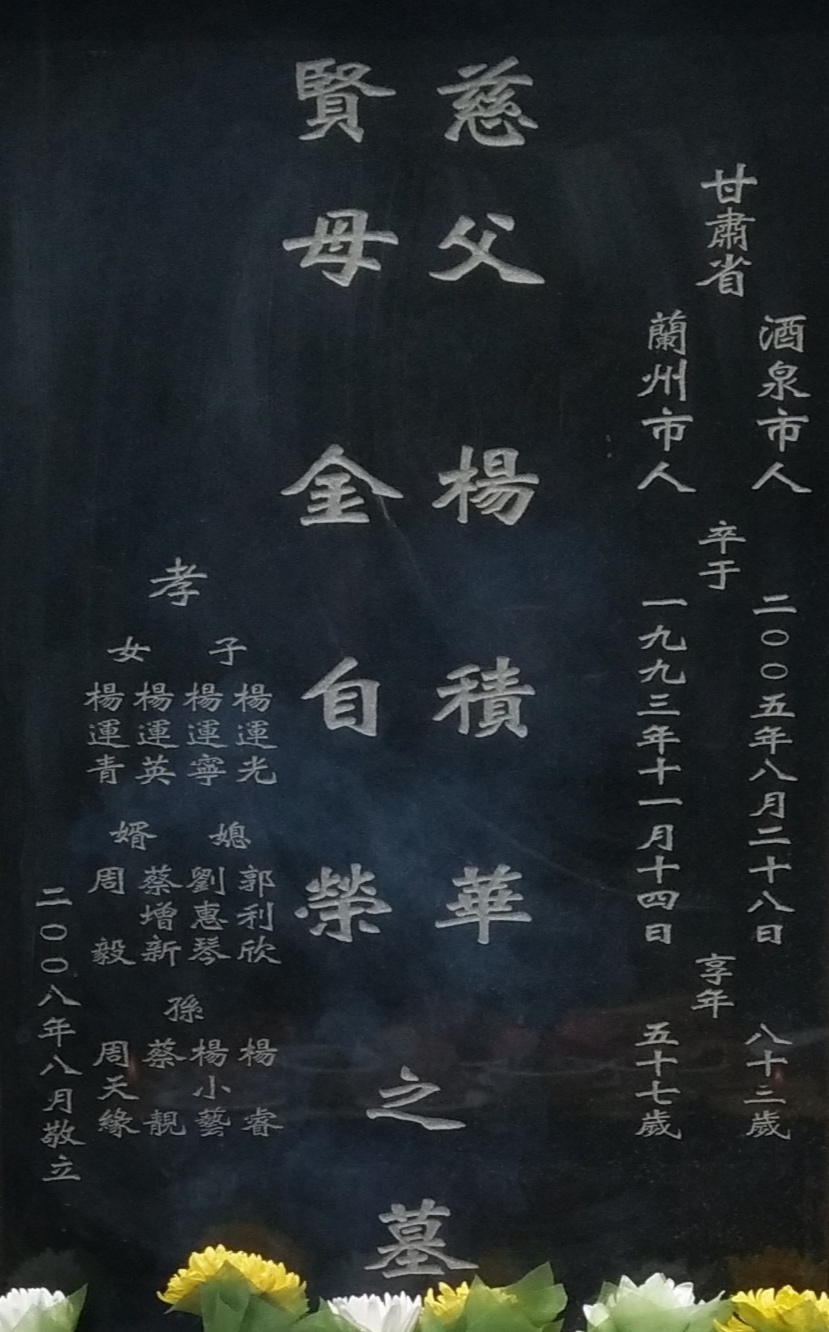 甘肅省
酒泉市人
蘭州市人
卒于
二〇〇五年八月二十八日
一九九三年十一月十四日
享年
八十三歲
五十七歲
慈父楊積華
賢母金自榮
之墓
孝
子
女
楊運光
楊運寧
楊運英
楊運青
媳
婿
郭利欣
劉惠琴
蔡增新
周毅
孫
楊睿
楊小藝
蔡靚
周天緣
二〇〇八年八月敬立